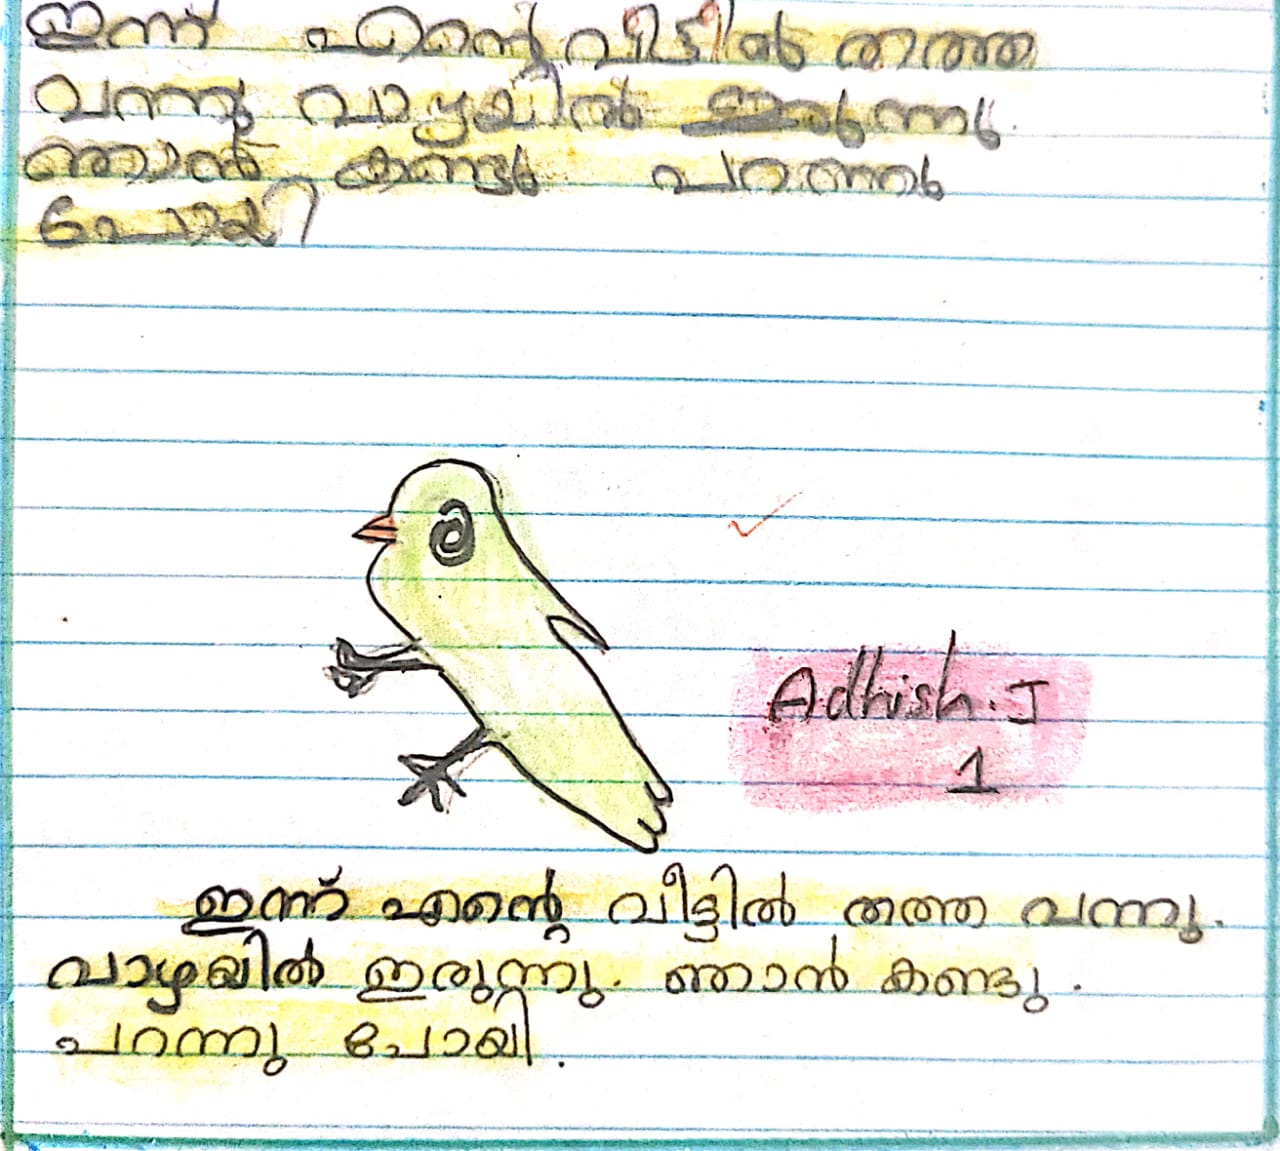 ഇന്ന് എന്റെ വീട്ടിൽ തത്ത
വന്നു വാഴയിൽ ഇരുന്നു.
ഞാൻ കണ്ടു പറന്നു
പോയി
Adhish. J
1
ഇന്ന് എന്റെ വീട്ടിൽ തത്ത വന്നു.
വാഴയിൽ ഇരുന്നു. ഞാൻ കണ്ടു.
പറന്നു പോയി.